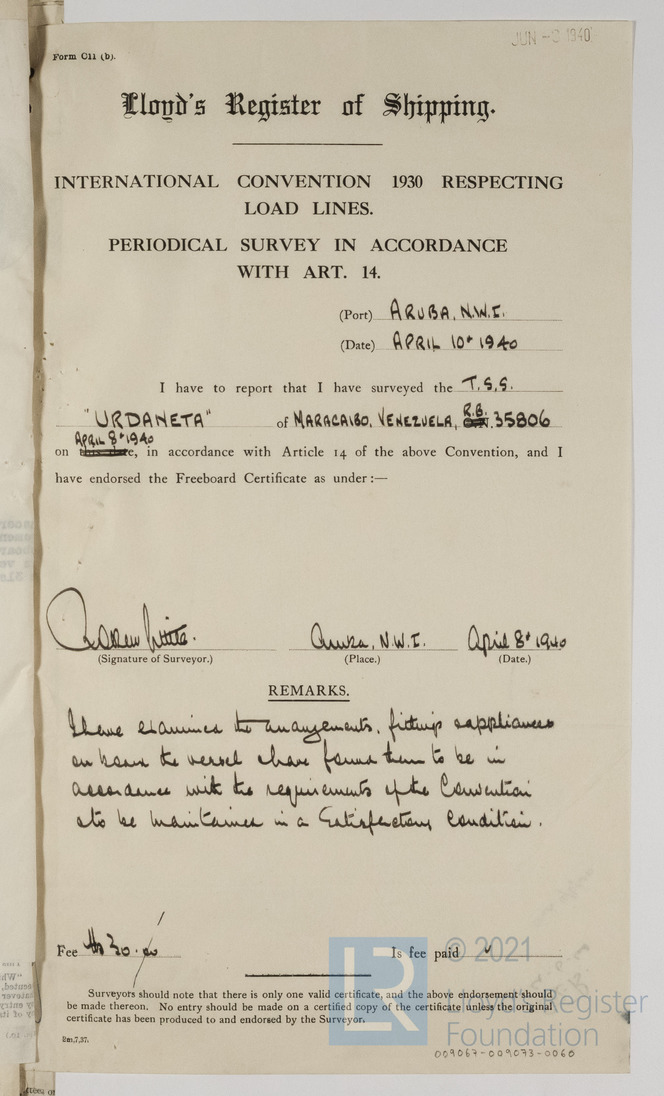 JUN -3 1940
Form C11 (b).
Lloyd's Register of Shipping.
INTERNATIONAL CONVENTION 1930 RESPECTING
LOAD LINES.
PERIODICAL SURVEY IN ACCORDANCE
WITH ART. 14.
(Port) ARUBA, N.W.I.
(Date) APRIL 10th 1940
I have to report that I have surveyed the T.S.S.
"URDANETA" of MARACAIBO, VENEZUELA, R.B. 35806
April 8th 1940
on this date, in accordance with Article 14 of the above Convention, and I
have endorsed the Freeboard Certificate as under:—
Aruba, N.W.I. April 8th 1940
(Signature of Surveyor.) (Place.) (Date.)
REMARKS.
I have examined the arrangements, fittings & appliances
on board the vessel & have found them to be in
accordance with the requirements of the Convention
& to be maintained in a Satisfactory Condition.
Fee 30.00 Is fee paid
Surveyors should note that there is only one valid certificate, and the above endorsement should
be made thereon. No entry should be made on a certified copy of the certificate unless the original
certificate has been produced to and endorsed by the Surveyor.
2m,7,37.
© 2021
Lloyd's Register
Foundation
LR
009067-009073-0060